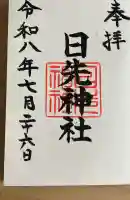 奉拝
日先神社
令和八年七月二十六日